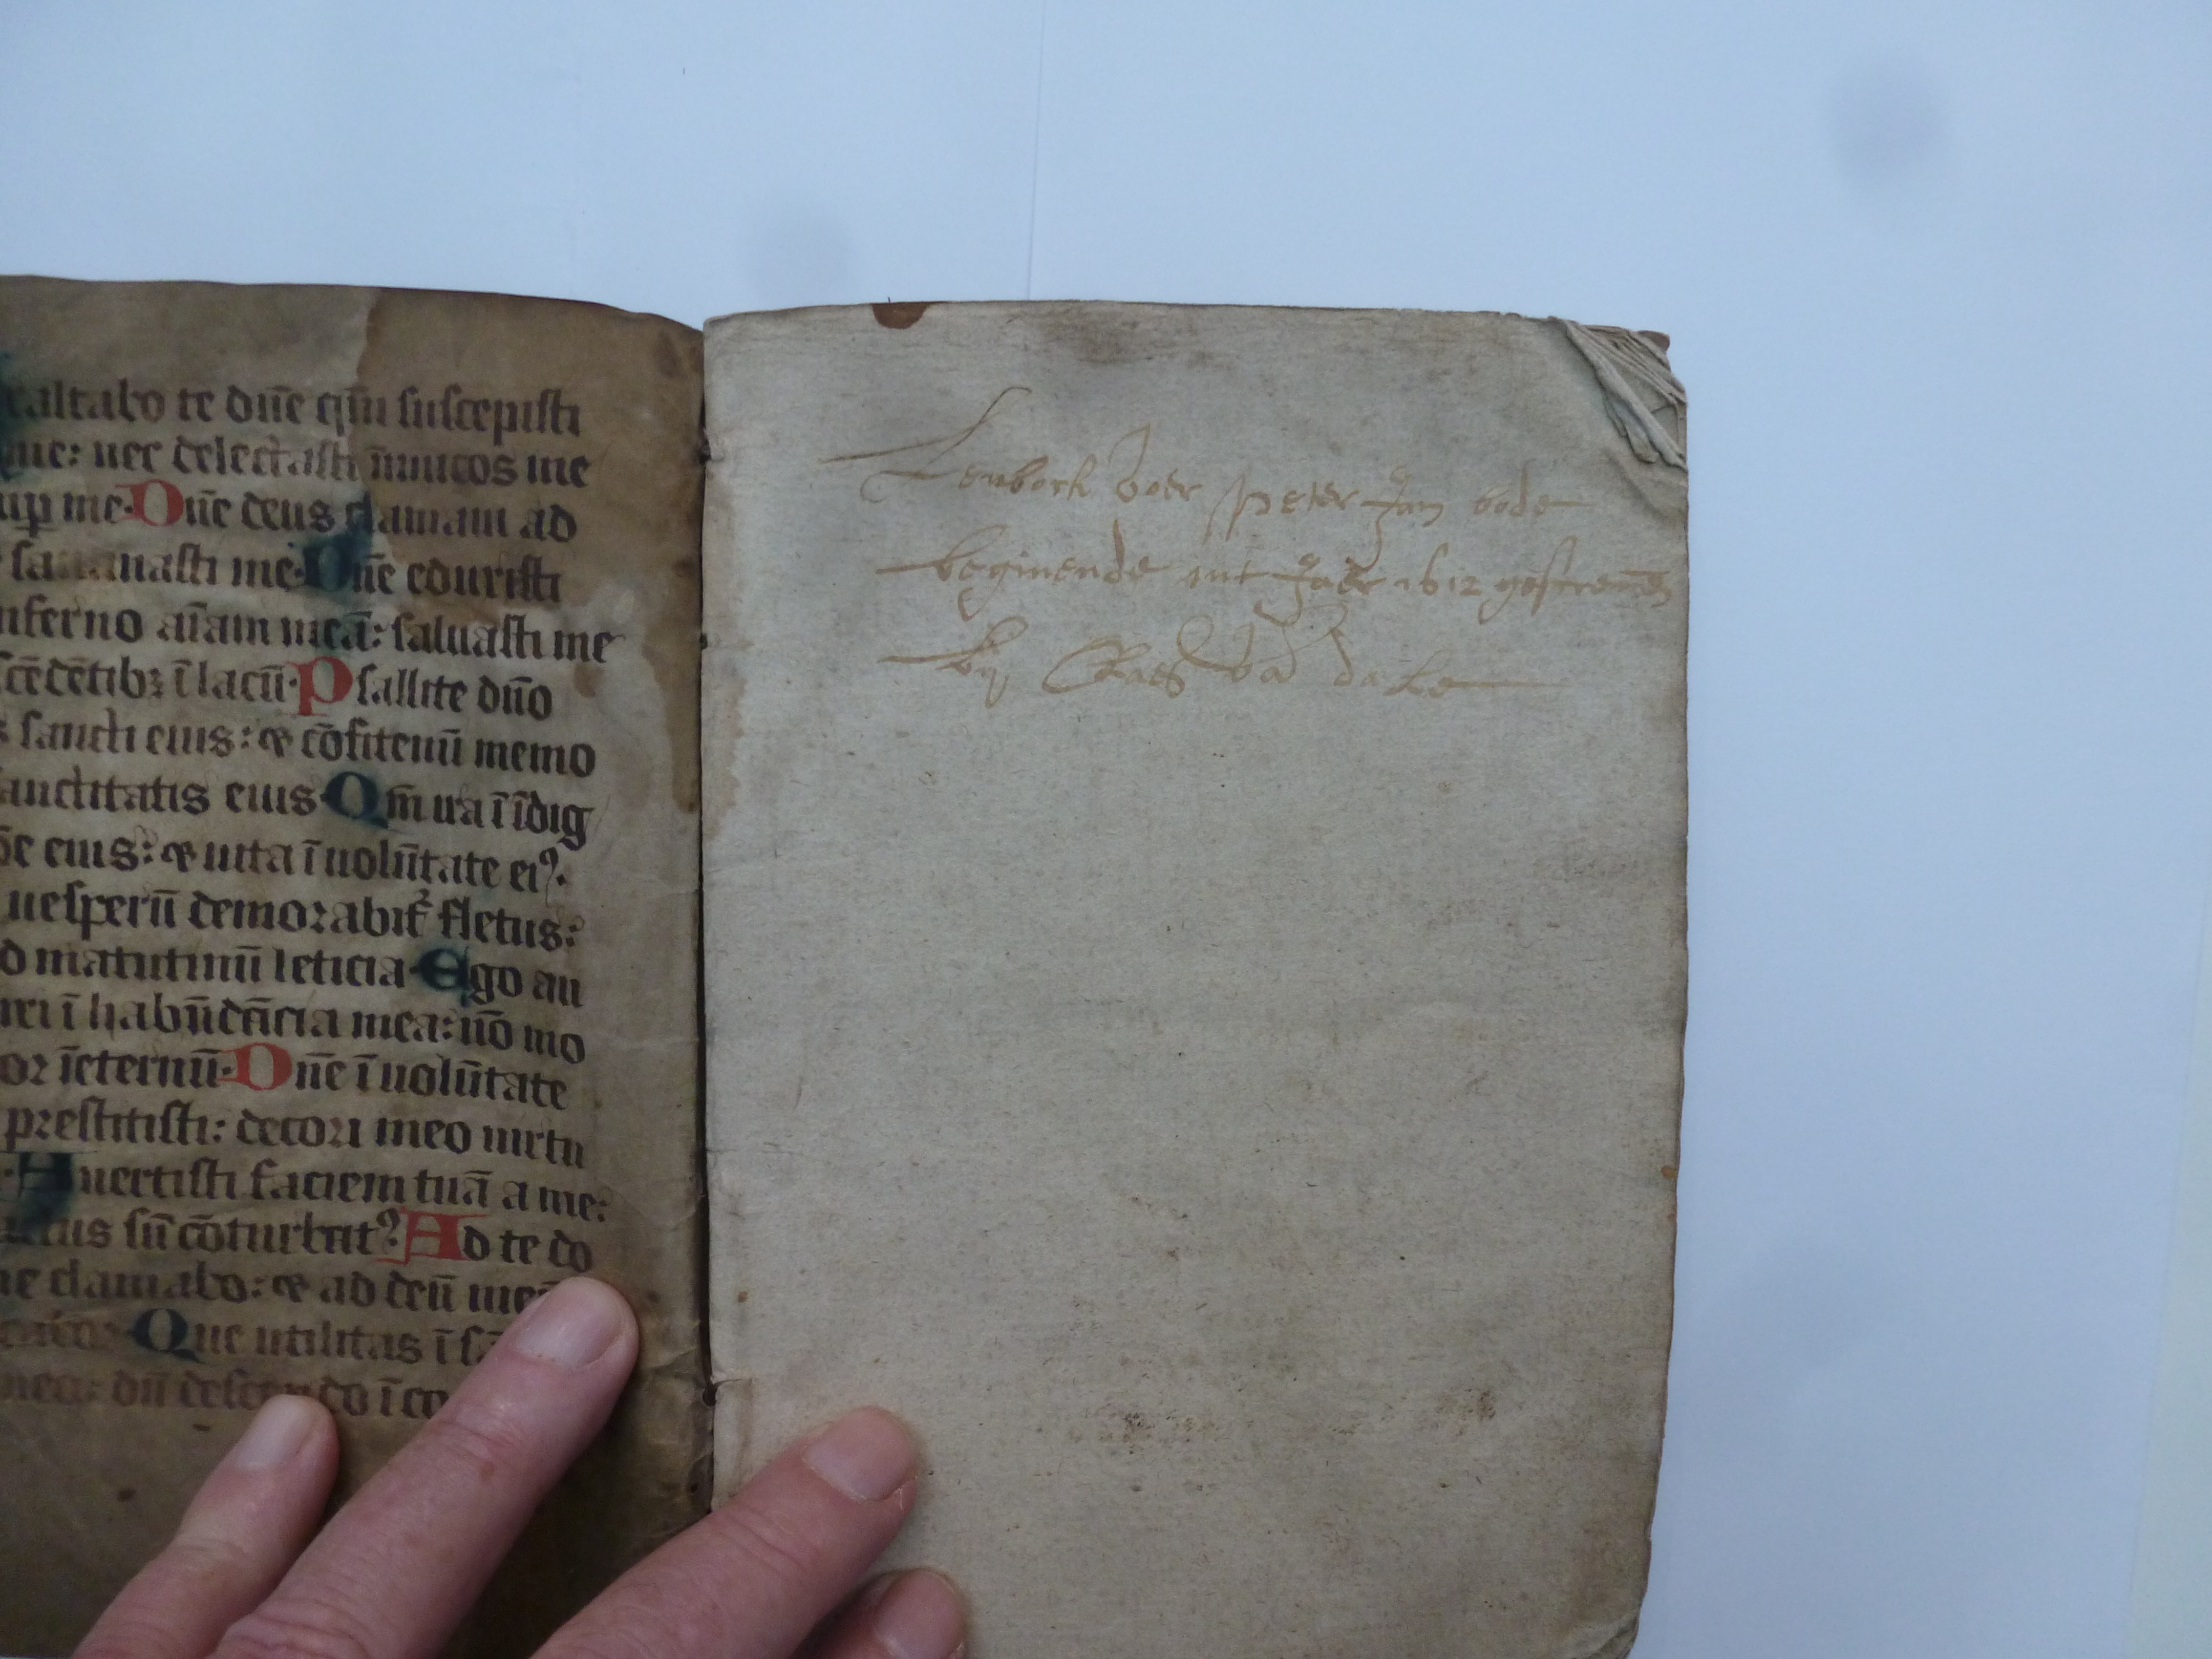 altabo te dn̄e qm̄ suscepisti
me: nec delectasti īimicos me
sup̄ me. Dn̄e deus clamaui ad
sananasti me. Dn̄e eduxisti
inferno aīam meā: saluasti me
scēdētibꝫ ī lacū. Psallite dn̄o
sancti eius: ⁊ cōfitemī memo
sanctitatis eius. Qm̄ ira ī īdig
eius: ⁊ uita ī uolūtate ei9.
uesperū demorabit᷑ fletus:
ad matutinū leticia. Ego au
ī habūdācia mea: nō mo
ꝛ īeternū. Dn̄e ī uolūtate
prestitisti: decori meo uirtu
Auertisti faciem tuā a me:
sū cōturbat9. Ad te do
clamabo: ⁊ ad deū meū
Que utilitas ī sā
dū descendo ī co
Lenboek voer peter Jan bode
beginende int Jaer 1612
bij Claes vā dale